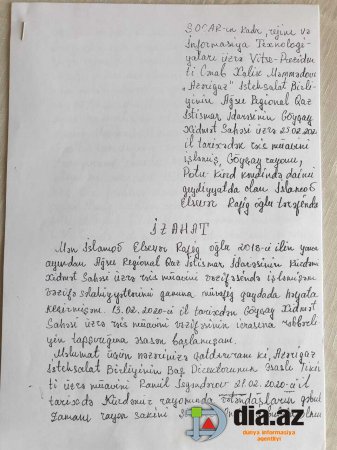 SOCAR-ın Kadr, rejim və
İnformasiya Texnologi-
yaları üzrə Vitse-Preziden
ti Cənab Xalik Məmmədova
"Azəriqaz" İstehsalat Birli-
yinin Ağsu Regional Qaz
İstismar İdarəsinin Göyçay
Xidmət Sahəsi üzrə
il tarixədək rəis müavini
işləmiş, Göyçay rayonu,
Potu kənd kəndində daimi
qeydiyyatda olan İslamov
Elsevər Rafiq oğlu tərəfində
İZAHAT
Mən İslamov Elsevər Rafiq oğlu 2018-ci ilin yanvar
ayından Ağsu Regional Qaz İstismar İdarəsinin Kürdəmir
Xidmət Sahəsi üzrə rəis müavini vəzifəsində işləmişəm
vəzifə səlahiyyətlərimi qanuna müvafiq qaydada həyata
keçirmişəm. 13.02.2020-ci il tarixdən Göyçay Xidmət
Sahəsi üzrə rəis müavini vəzifəsinin icrasına rəhbərli
yin tapşırığına əsasən başlamışam.
Məlumat üçün nəzərinizə çatdırıram ki, Azəriqaz
İstehsalat Birliyinin Baş Direktorunun
ti üzrə müavini Ramil İsgəndərov 27.02.2020-ci il
tarixdə Kürdəmir rayonunda vətəndaşların qəbul
zamanı rayon sakini
dia.az
dünya informasiya
agentliyi